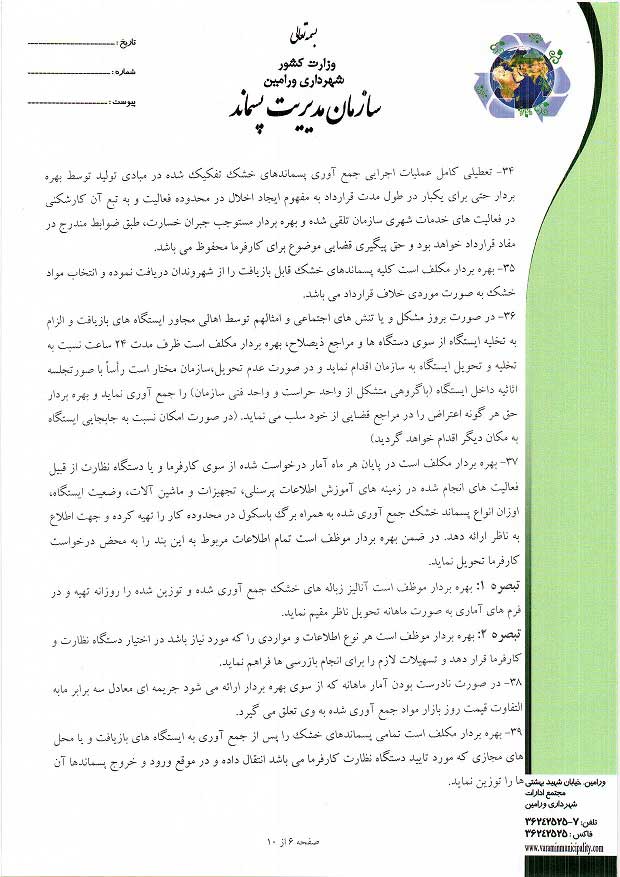 بسمه تعالی
وزارت کشور
شهرداری ورامین
سازمان مدیریت پسماند
تاریخ :
شماره :
پیوست :
۳۴- تعطیلی کامل عملیات اجرایی جمع آوری پسماندهای خشک تفکیک شده در مبادی تولید توسط بهره
بردار حتی برای یکبار در طول مدت قرارداد به مفهوم ایجاد اخلال در محدوده فعالیت و به تبع آن کارشکنی
در فعالیت های خدمات شهری سازمان تلقی شده و بهره بردار مستوجب جبران خسارت، طبق ضوابط مندرج در
مفاد قرارداد خواهد بود و حق پیگیری قضایی موضوع برای کارفرما محفوظ می باشد.
۳۵- بهره بردار مکلف است کلیه پسماندهای خشک قابل بازیافت را از شهروندان دریافت نموده و انتخاب مواد
خشک به صورت موردی خلاف قرارداد می باشد.
۳۶- در صورت بروز مشکل و یا تنش های اجتماعی و امثالهم توسط اهالی مجاور ایستگاه های بازیافت و الزام
به تخلیه ایستگاه از سوی دستگاه ها و مراجع ذیصلاح، بهره بردار مکلف است ظرف مدت ۲۴ ساعت نسبت به
تخلیه و تحویل ایستگاه به سازمان اقدام نماید و در صورت عدم تحویل،سازمان مختار است رأساً با صورتجلسه
اثاثیه داخل ایستگاه (باگروهی متشکل از واحد حراست و واحد فنی سازمان) را جمع آوری نماید و بهره بردار
حق هر گونه اعتراض را در مراجع قضایی از خود سلب می نماید. (در صورت امکان نسبت به جابجایی ایستگاه
به مکان دیگر اقدام خواهد گردید)
۳۷- بهره بردار مکلف است در پایان هر ماه آمار درخواست شده از سوی کارفرما و یا دستگاه نظارت از قبیل
فعالیت های انجام شده در زمینه های آموزش اطلاعات پرسنلی، تجهیزات و ماشین آلات، وضعیت ایستگاه،
اوزان انواع پسماند خشک جمع آوری شده به همراه برگ باسکول در محدوده کار را تهیه کرده و جهت اطلاع
به ناظر ارائه دهد. در ضمن بهره بردار موظف است تمام اطلاعات مربوط به این بند را به محض درخواست
کارفرما تحویل نماید.
تبصره ۱: بهره بردار موظف است آنالیز زباله های خشک جمع آوری شده و توزین شده را روزانه تهیه و در
فرم های آماری به صورت ماهانه تحویل ناظر مقیم نماید.
تبصره ۲: بهره بردار موظف است هر نوع اطلاعات و مواردی را که مورد نیاز باشد در اختیار دستگاه نظارت و
کارفرما قرار دهد و تسهیلات لازم را برای انجام بازرسی ها فراهم نماید.
۳۸- در صورت نادرست بودن آمار ماهانه که از سوی بهره بردار ارائه می شود جریمه ای معادل سه برابر مابه
التفاوت قیمت روز بازار مواد جمع آوری شده به وی تعلق می گیرد.
۳۹- بهره بردار مکلف است تمامی پسماندهای خشک را پس از جمع آوری به ایستگاه های بازیافت و یا محل
های مجازی که مورد تایید دستگاه نظارت کارفرما می باشد انتقال داده و در موقع ورود و خروج پسماندها آن
ها را توزین نماید.
ورامین، خیابان شهید بهشتی
مجتمع ادارات
شهرداری ورامین
تلفن: ۷-۳۶۲۴۲۵۲۵
فاکس: ۳۶۲۴۲۵۲۵
www.varaminmunicipality.com
صفحه ۶ از ۱۰